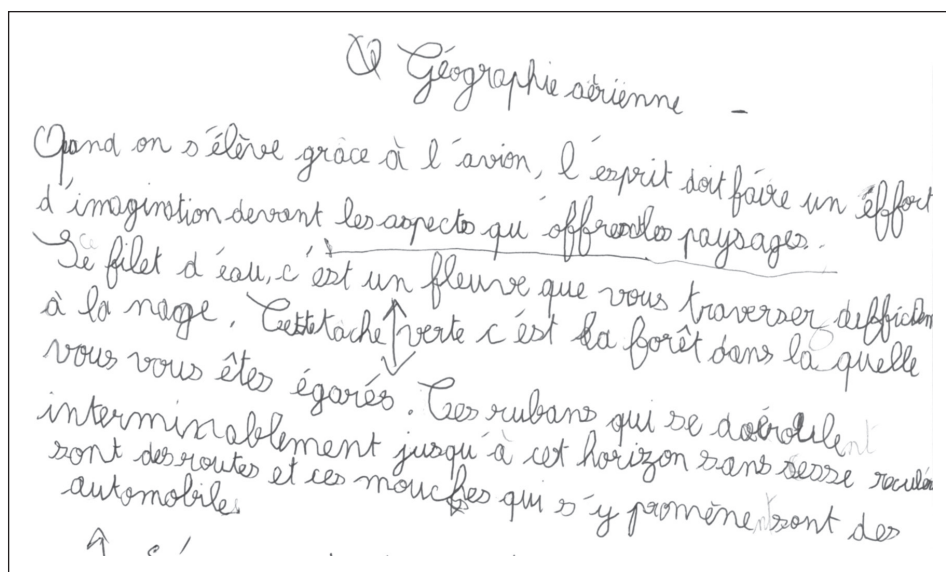 Géographie aérienne -
Quand on s'élève grâce à l'avion, l'esprit doit faire un éffort
d'imagination devant les aspects qu'offres les paysages.
Se filet d'éau, c'est un fleuve que vous traverser defficilem
à la nage. Cette tâche verte c'est la forêt dans la quelle
vous vous êtes égarés. Ces rubans qui se déroulent
interminablement jusqu'à cet horizon sans sesse reculé
sont des routes et ces mouches qui s'y promènent sont des
automobiles